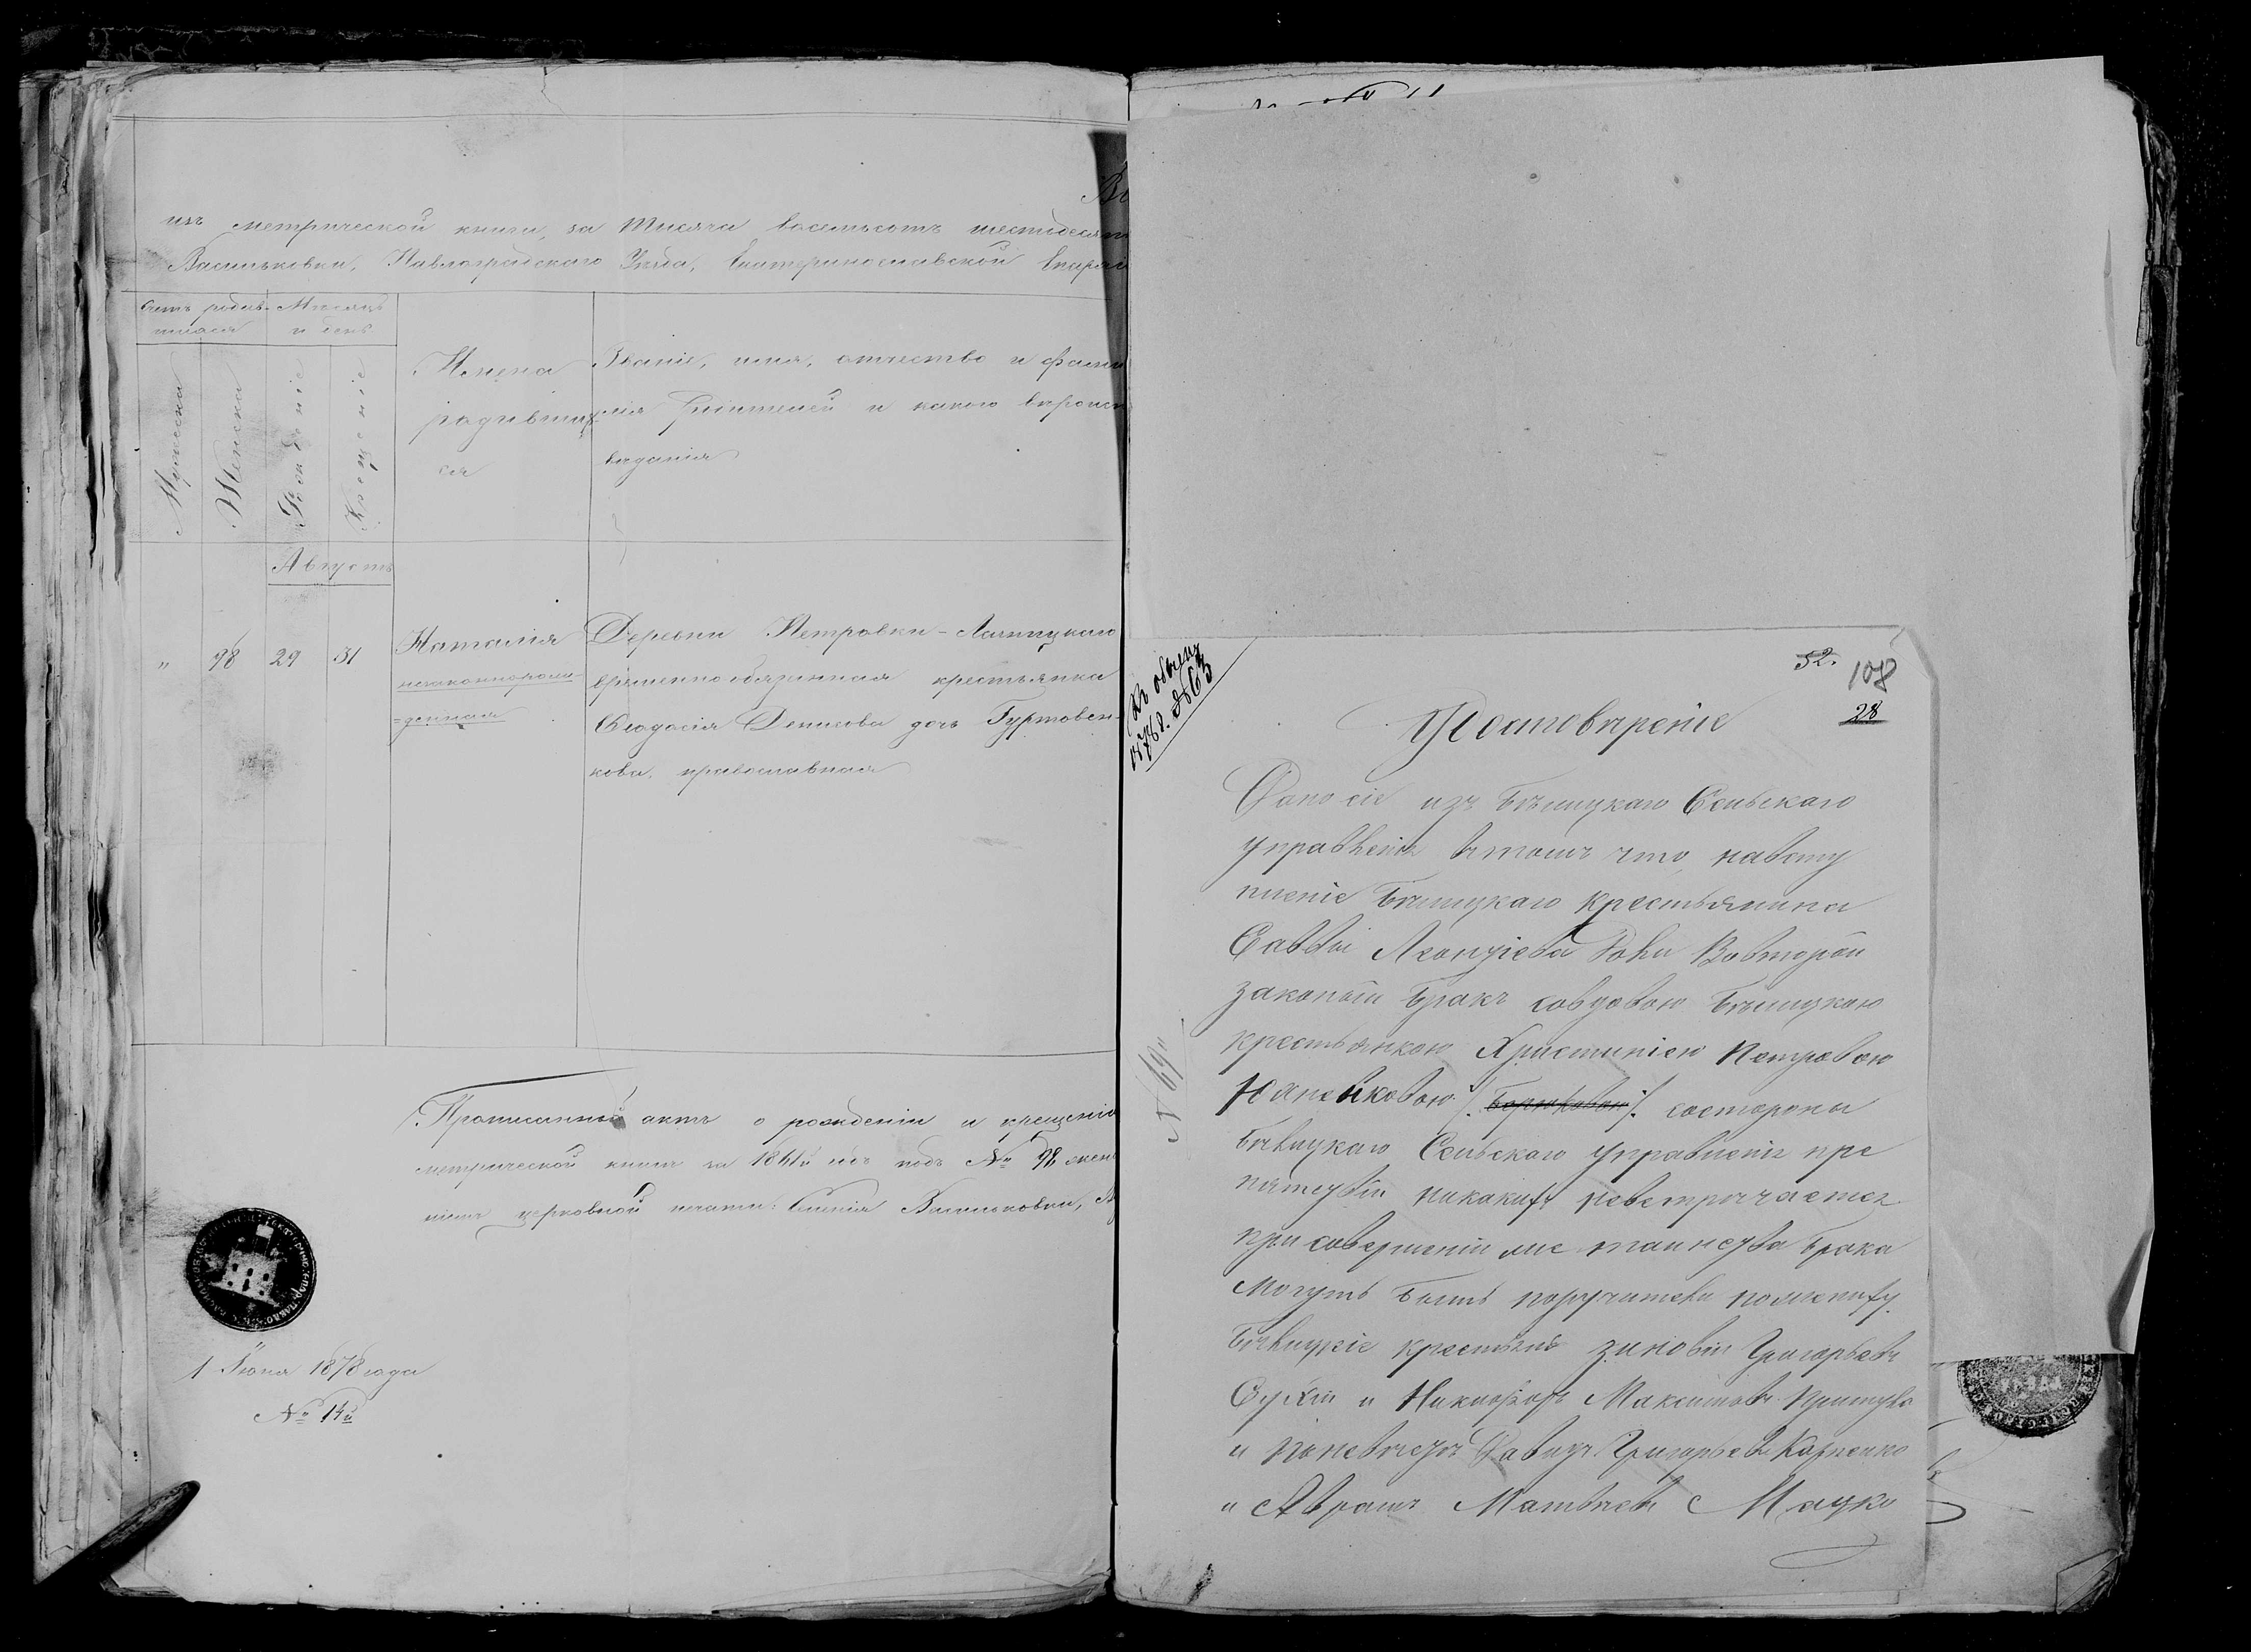 Вы
изъ метрической книги, за тысяча восемьсотъ шестидесят
Васильковки, Павлоградскаго Уѣзда, Екатеринославской Епархі
Счетъ родив-
шихся
Мѣсяцъ
и день
Мужеска
Женска
Рожденіе
Крещеніе
Имена
родивших
ся
Званіе, имя, отчество и фами
лія родителей и какого вѣроиспо
вѣданія
Августъ
"
98
29
31
Наталія
незаконнорож-
=денная
Деревни Петровки-
временнообязанная крестьянка
Феодосія Денисова дочь Гуртовен-
кова, православная
Прописанный актъ о рожденіи и крещеніи
метрической книги за 1861й годъ подъ № 98 жен
ніемъ церковной печати: Селенія Васильковки,
1 Іюня 1878 года
№ 14й
Къ обыску
1878 г. № 63
52.
108
28
Удостовѣреніе
№ 69й
Дано сіе изъ Бѣлицкаго Сельскаго
управленія вътомъ что, навсту
пленіе Бѣлицкаго крестьянина
Саввы Леонтіева Вовторой
законый бракъ совдовою Бѣлицкою
крестьянкою Христиніею Петровою
состороны
Бѣлицкаго Сельскаго Управленія пре
пятствій никакихъ невстрѣчается
при совершеніи же таинства брака
Могутъ быть поручители пожениху
Бѣлицкіе крестьяне Зиновій Григорьевъ
Сухій и Никифоръ Максимовъ Притула
и поневѣстѣ Давидъ Григорьевъ Карпенко
и Аврамъ Матвѣевъ Мацко